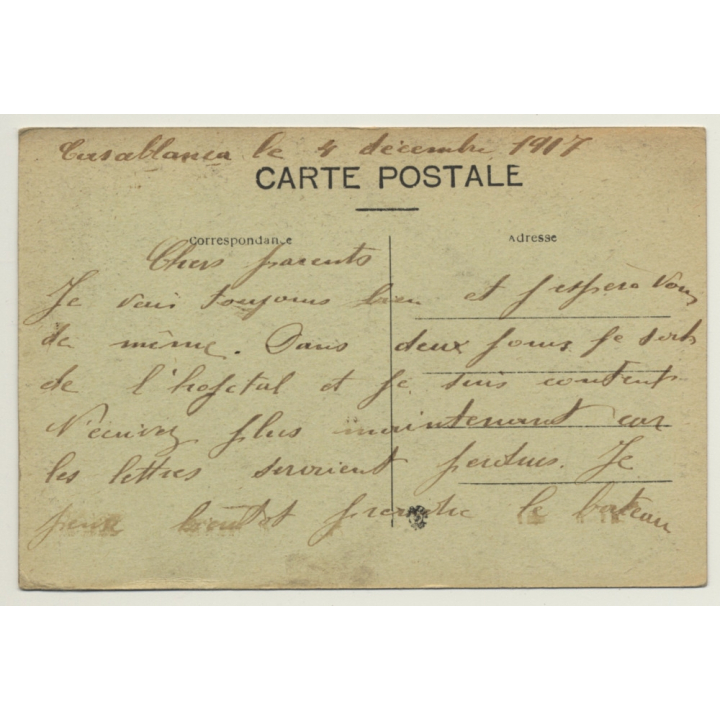 Casablanca le 4 décembre 1917
CARTE POSTALE
Correspondance
Adresse
Chers parents
Je vais toujours bien et j'espère vous
de même. Dans deux jours je sorts
de l'hopital et je suis content
N'écrivez plus maintenant car
les lettres seroient perdues. Je
pense bientot prendre le bateau